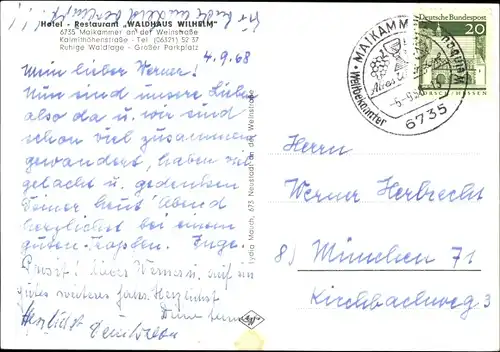 Hotel - Restaurant „WALDHAUS WILHELM"
6735 Maikammer an der Weinstraße
Kalmithöhenstraße - Tel. (06321) 52 37
Ruhige Waldlage - Großer Parkplatz
4.9.68
Mein lieber Werner!
Nun sind unsere Lieben
also da u. wir sind
schon viel zusammen
gewandert, haben viel
gelacht u. gedenken
Deiner heut' Abend
herzlichst bei einem
guten Tropfen. Inge.
Prosit! lieber Werner, auf ein
gutes weiteres Jahr. Herzlichst
Herzlichst Dein
Lydia Mauch, 673 Neustadt an der Weinstraße
Deutsche Bundespost
20
LORSCH/HESSEN
MAIKAMMER
Weltbekannter
6735
Herrn
Werner Herbrecht
8) München 71
Kirchbachweg 3